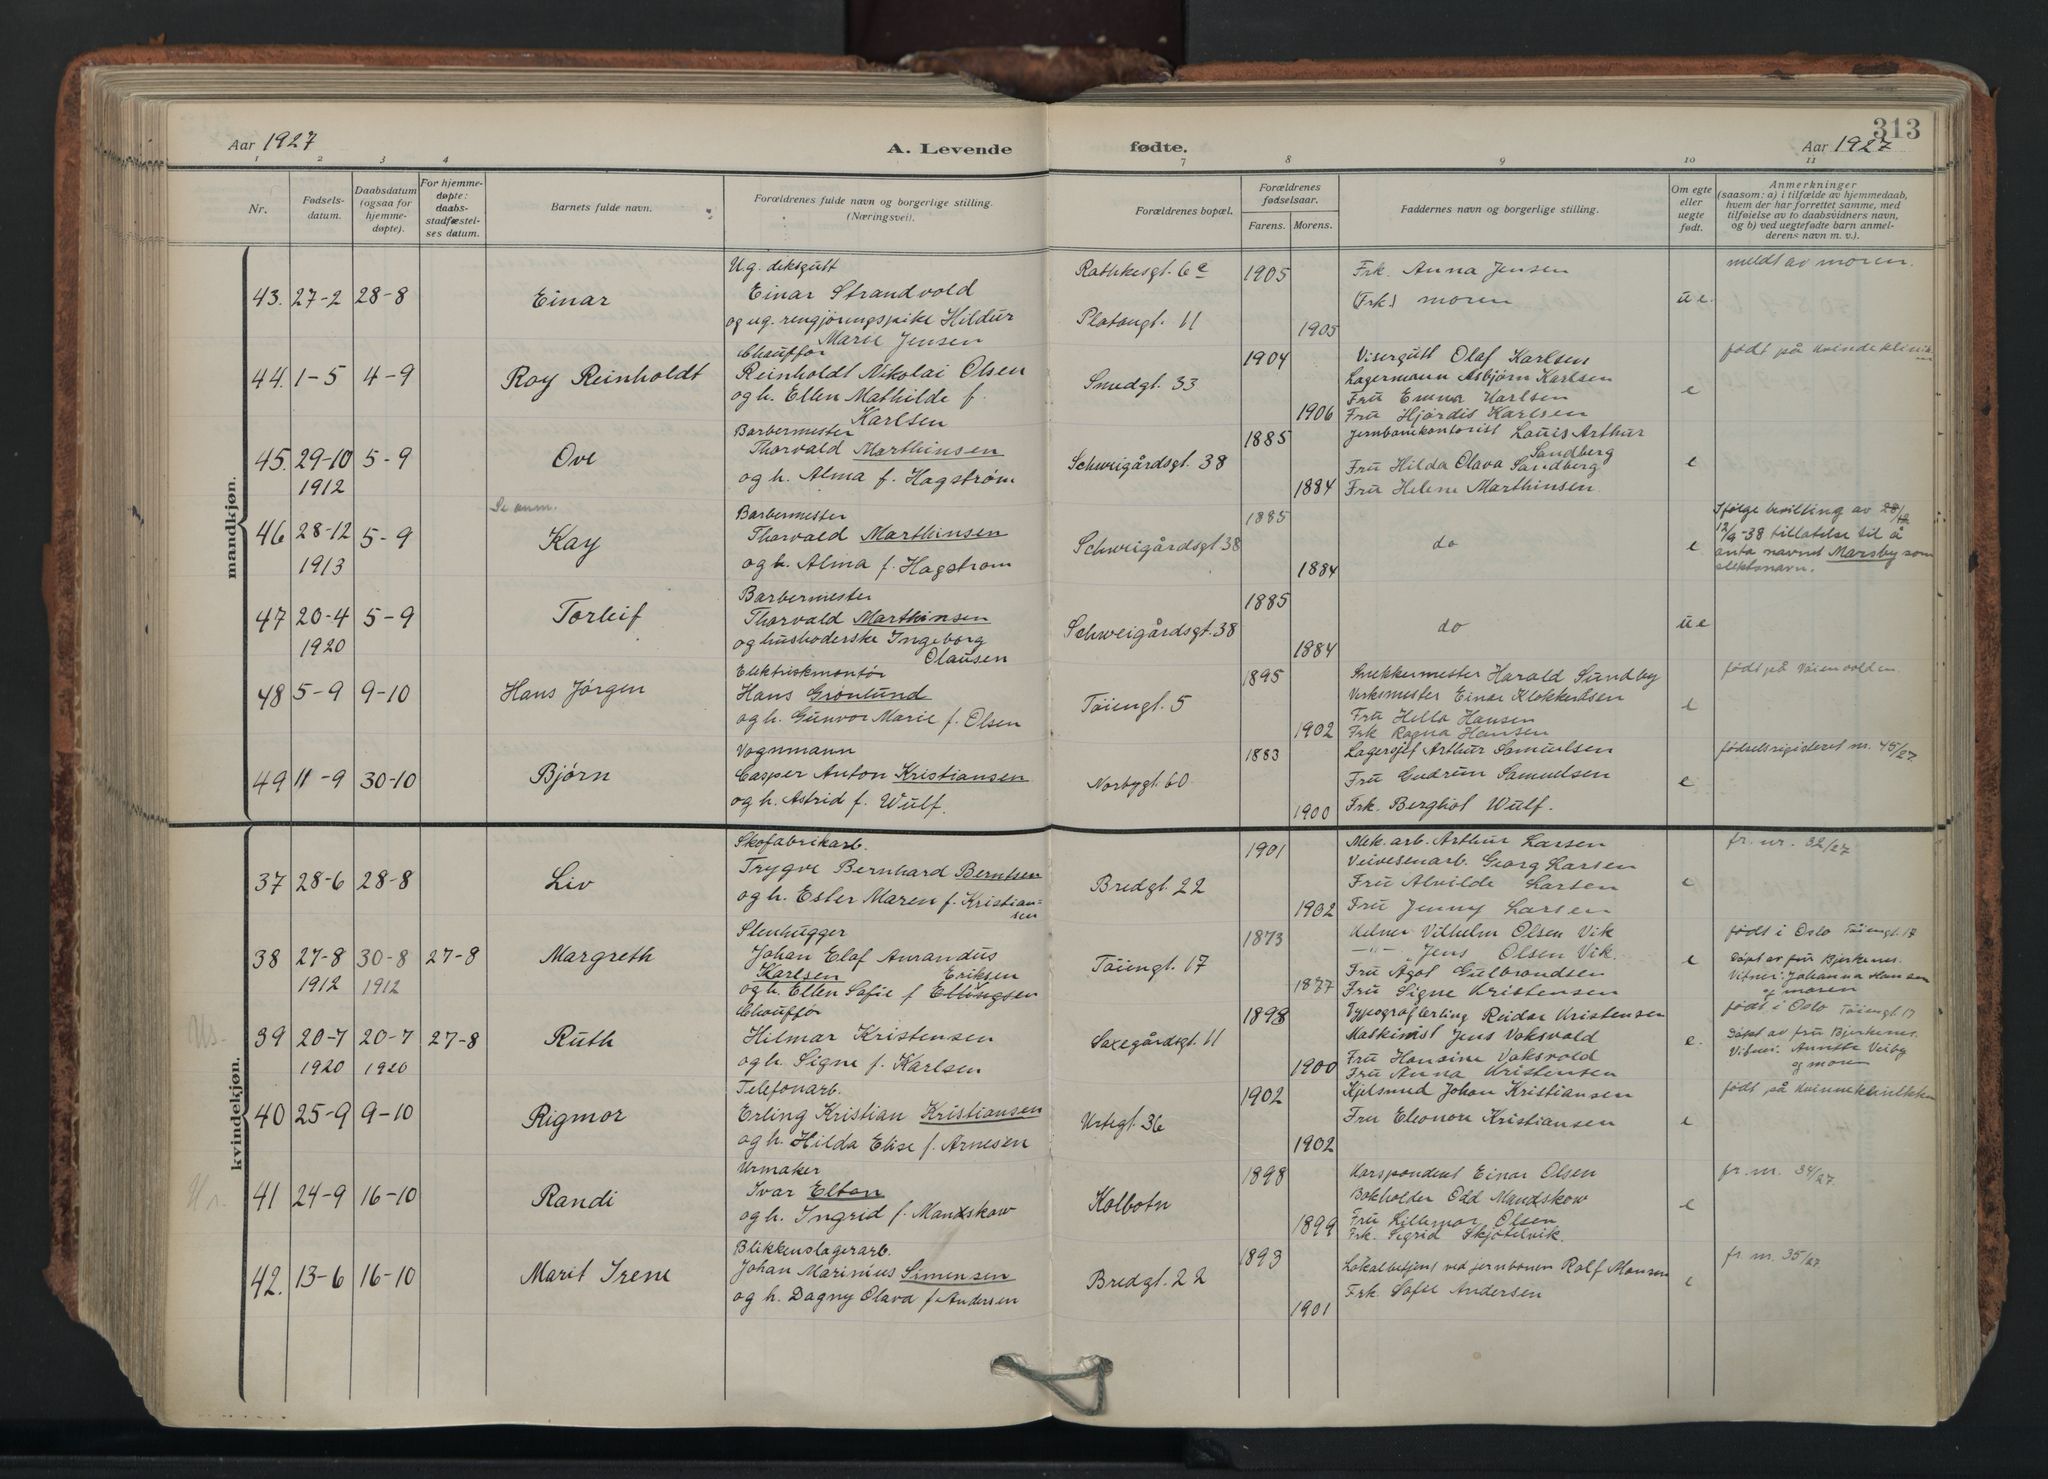 313
Aar 1927
A. Levende
fødte.
Aar 1927
1 2 3 4 7 8 9 10 11
Nr.
Fødsels-
datum.
Daabsdatum
(ogsaa for
hjemme-
døpte).
For hjemme-
døpte:
daabs-
stadfæstel-
ses datum.
Barnets fulde navn.
Forældrenes fulde navn og borgerlige stilling.
(Næringsvei).
Forældrenes bopæl.
Forældrenes
fødselsaar.
Farens. Morens.
Faddernes navn og borgerlige stilling.
Om egte
eller
uegte
født.
Anmerkninger
(saasom: a) i tilfælde av hjemmedaab,
hvem der har forrettet samme, med
tilføielse av to daabsvidners navn,
og b) ved uegtefødte barn anmel-
derens navn m. v.).
mandkjøn.
43. 27-2 28-8
Einar
Ug. deksgutt
Einar Strandvold
og ug. rengjøringspike Hildur
Marie Jensen
Rathkesgt. 6c
Platougt. 11
1905
1905
Frk. Anna Jensen
(Frk.) moren
u e.
meldt av moren.
44. 1-5 4-9
Roy Reinholdt
Chauffør
Reinholdt Nikolai Olsen
og h. Ellen Mathilde f.
Karlsen
Smedgt. 33
1904
1906
Visergutt Olaf Karlsen
Lagermann Asbjørn Karlsen
Fru Emma Karlsen
Fru Hjørdis Karlsen
e
født på Kvindeklinik
45. 29-10 5-9
1912
Ove
Barbermester
Thorvald Marthinsen
og h. Alma f. Hagstrøm
Schweigårdsgt. 38
1885
1884
Jernbanekontorist Louis Arthur
Sandberg
Fru Hilda Olava Sandberg
Fru Helene Marthinsen
e
46 28-12 5-9
1913
Se anm.
Kay
Barbermester
Thorvald Marthinsen
og h. Alma f. Hagstrøm
Schweigårdsgt. 38
1885
1884
do
e
Ifølge bevilling av 28/12
12/9-38 tillatelse til å
anta navnet Marsby som
slektsnavn.
47 20-4 5-9
1920
Torleif
Barbermester
Thorvald Marthinsen
og husholderske Ingeborg
Olausen
Schweigårdsgt. 38
1885
1884
do
u e
48 5-9 9-10
Hans Jørgen
Elektriskmontør
Hans Grønlund
og h. Gunvor Marie f. Olsen
Tøiengt. 5
1895
1902
Snekkermester Harald Sundby
Verksmester Einar Klokkerdsen
Fru Hella Hansen
Frk Ragna Hansen
e
født på
49 11-9 30-10
Bjørn
Vognmann
Casper Anton Kristiansen
og h. Astrid f. Wulf.
Norbygt. 60
1883
1900
Lagersjef Arthur Samuelsen
Fru Gudrun Samuelsen
Frk. Berghot Wulf.
e
fødselsregisteret nr. 45/27.
kvindekjøn.
37 28-6 28-8
Liv
Skofabrikarb.
Trygve Bernhard Berntsen
og h. Ester Maren f. Kristian-
sen
Bredgt. 22
1901
1902
Mek. arb. Arthur Larsen
Veivesenarb. Georg Larsen
Fru Alvilde Larsen
Fru Jenny Larsen
e
fr. nr. 32/27
38 27-8 30-8 27-8
1912 1912
Margreth
Stenhugger
Johan Elof Amandus
Karlsen Eriksen
og h. Ellen Sofie f Ellingsen
Tøiengt. 17
1873
1877
Helmer Vilhelm Olsen Vik
—"— Jens Olsen Vik.
Fru Ågot Gulbrandsen
Fru Signe Kristensen
e
født i Oslo Tøiengt. 17
Døpt av fru Bjerkenes.
Vitner: Johanna Hansen
og moren
39 20-7 20-7 27-8
1920 1920
Ruth
Chauffør
Hilmar Kristensen
og h. Signe f. Karlsen
Saxegårdsgt. 11
1898
1900
Typograflerling Reidar Kristensen
Maskinist Jens Voksvold
Fru Hansine Voksvold
Fru Anna Kristensen
e.
født i Oslo Tøiengt 17
Døpt av fru Bjerkenes.
Vitner: Annette Veiby
og moren
40 25-9 9-10
Rigmor
Telefonarb.
Erling Kristian Kristiansen
og h. Hilda Elise f. Arnesen
Urtegt. 36
1902
1902
Kjelsmed Johan Kristiansen
Fru Eleonore Kristiansen
e
født på Kvinneklinikken
41 24-9 16-10
Randi
Urmaker
Ivar Elton
og h. Ingrid f. Mandskow
Kolbotn
1898
1899
Korspondent Einar Olsen
Bokholder Odd Mandskow
Fru Lillemor Olsen
Frk. Sigrid Skjøtelvik.
e
fr. nr. 34/27.
42. 13-6 16-10
Marit Irene
Blikkenslagerarb.
Johan Marinius Simensen
og h. Dagny Olava f. Andersen
Bredgt. 22
1893
1901
Lokalbetjent ved jernbanen Rolf Monsen
Frk. Sofie Andersen
e
fr. nr. 35/27.